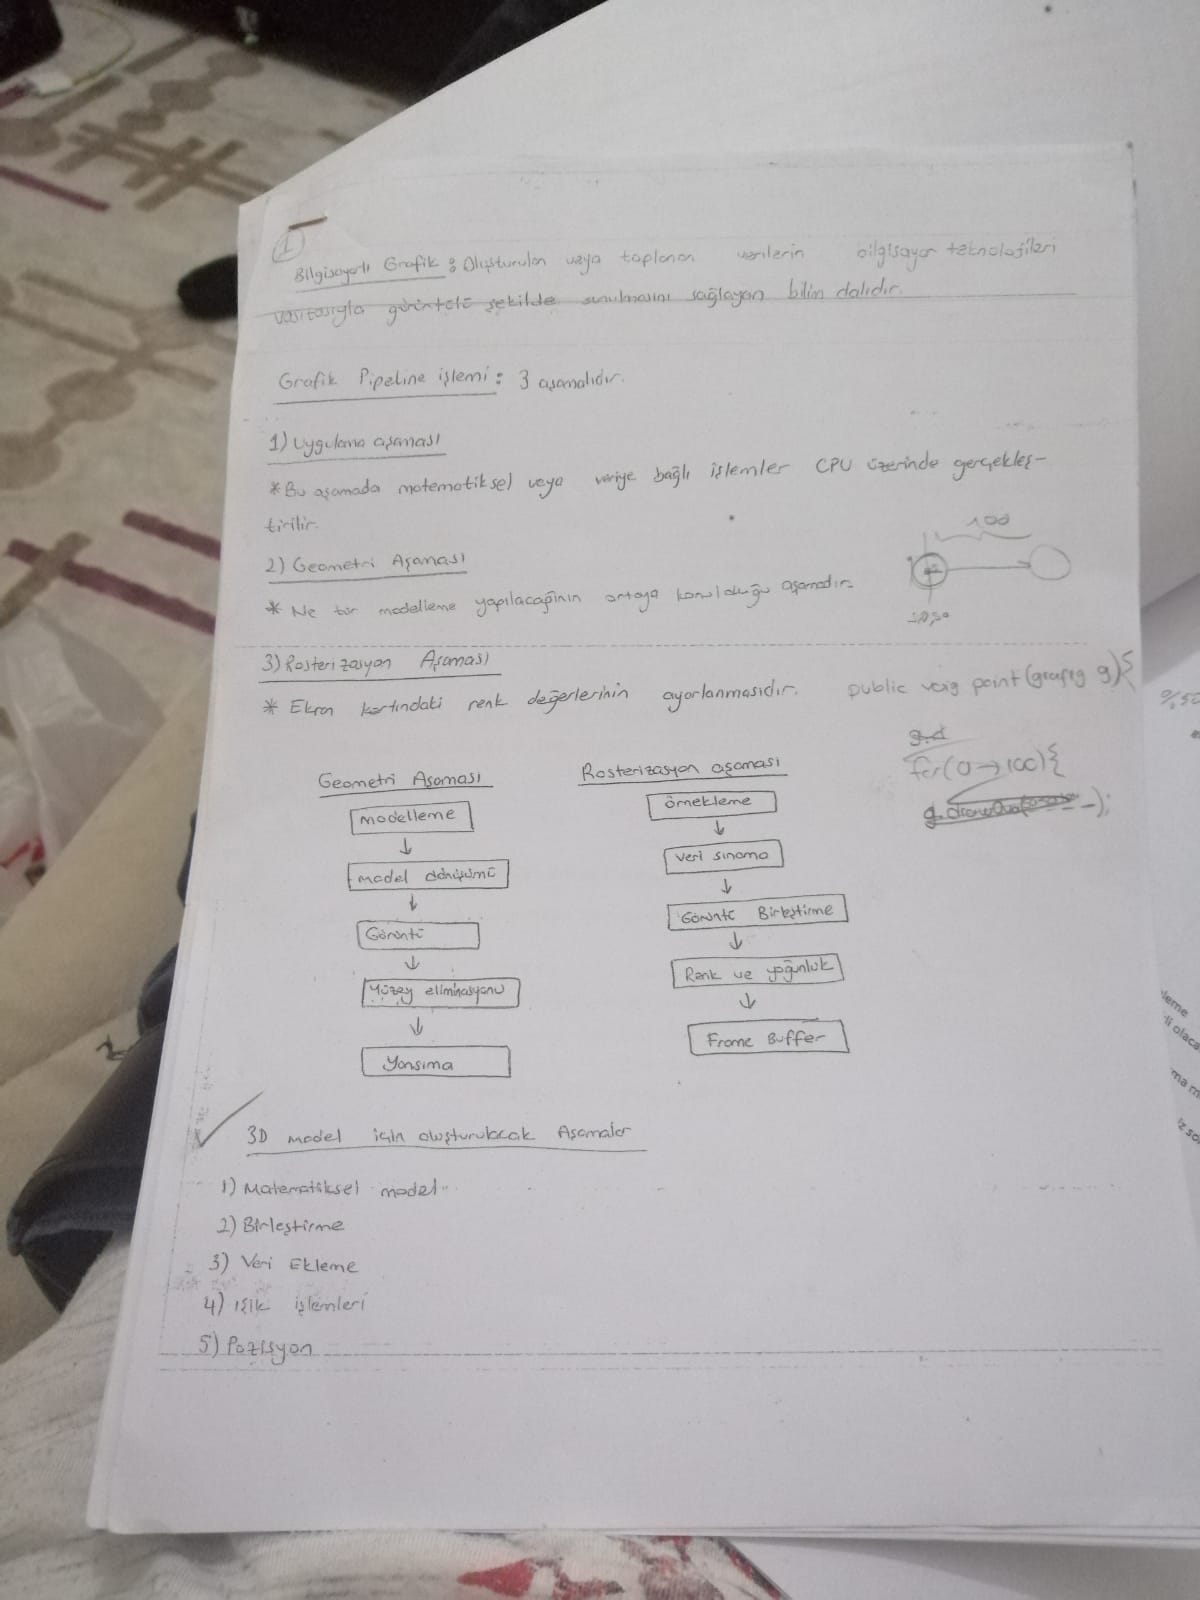 1
Bilgisayarlı Grafik : Oluşturulan veya toplanan verilerin bilgisayar teknolojileri
vasıtasıyla görüntülü şekilde sunulmasını sağlayan bilim dalıdır.
Grafik Pipeline işlemi : 3 aşamalıdır.
1) Uygulama aşaması
* Bu aşamada matematiksel veya veriye bağlı işlemler CPU üzerinde gerçekleş-
tirilir.
100
2) Geometri Aşaması
* Ne tür modelleme yapılacağının ortaya konulduğu aşamadır.
50,50
3) Rasterizasyon Aşaması
* Ekran kartındaki renk değerlerinin ayarlanmasıdır.
public voig point(grafig g){
g.d
for(0→100){
Geometri Aşaması
modelleme
↓
model dönüşümü
↓
Görüntü
↓
Yüzey eliminasyonu
↓
Yansıma
Rasterizasyon aşaması
örnekleme
↓
Veri sınama
↓
Görüntü Birleştirme
↓
Renk ve yoğunluk
↓
Frame Buffer
3D model için oluşturulacak Aşamalar
1) Matematiksel model
2) Birleştirme
3) Veri Ekleme
4) ışık işlemleri
5) Pozisyon